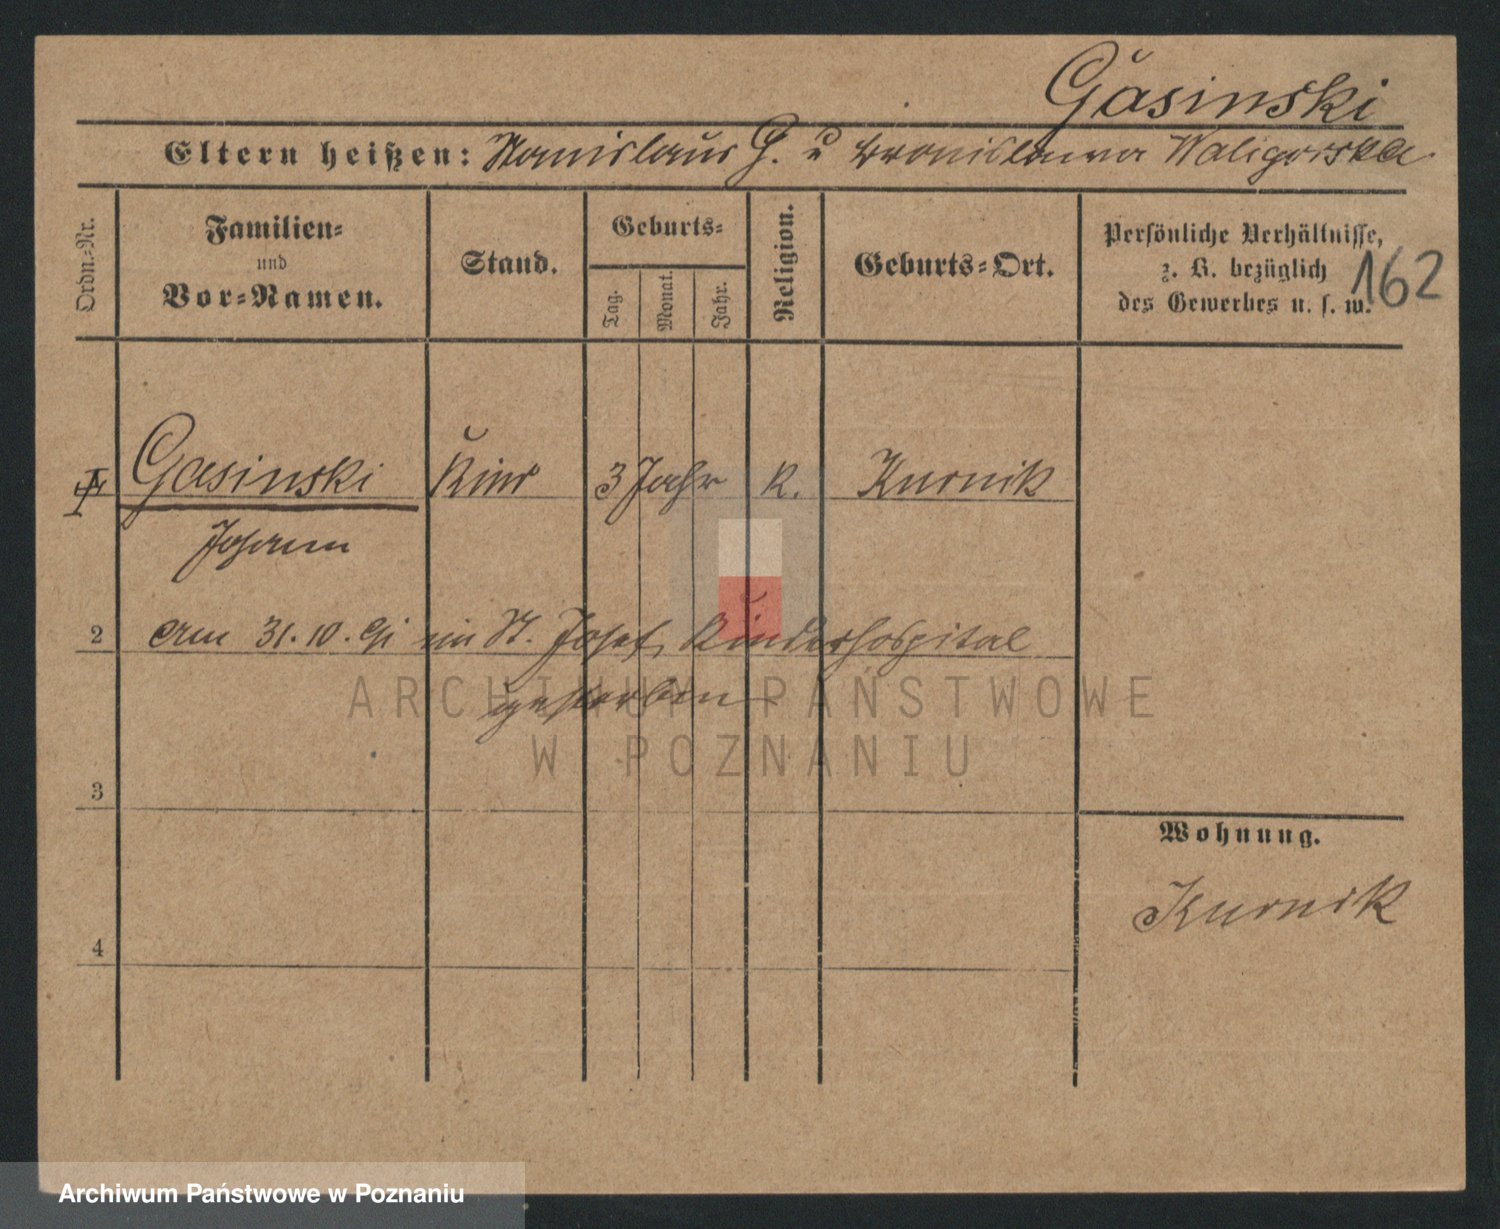 Gasinski
Eltern heißen: Stanislaus G. u Bronislawa Waligorska
Ordn.-Nr.
Familien-
und
Vor-Namen.
Stand.
Geburts-
Tag.
Monat.
Jahr.
Religion.
Geburts-Ort.
Persönliche Verhältnisse,
z. B. bezüglich
des Gewerbes u. s. w.
162
Gasinski Kind 3 Jahr K. Kurnik
Johann
2 am 31.10. im St. Josef, Kinderhospital
gestorben.
ARCHIWUM PAŃSTWOWE
W POZNANIU
3
Wohnung.
Kurnik
4
Archiwum Państwowe w Poznaniu